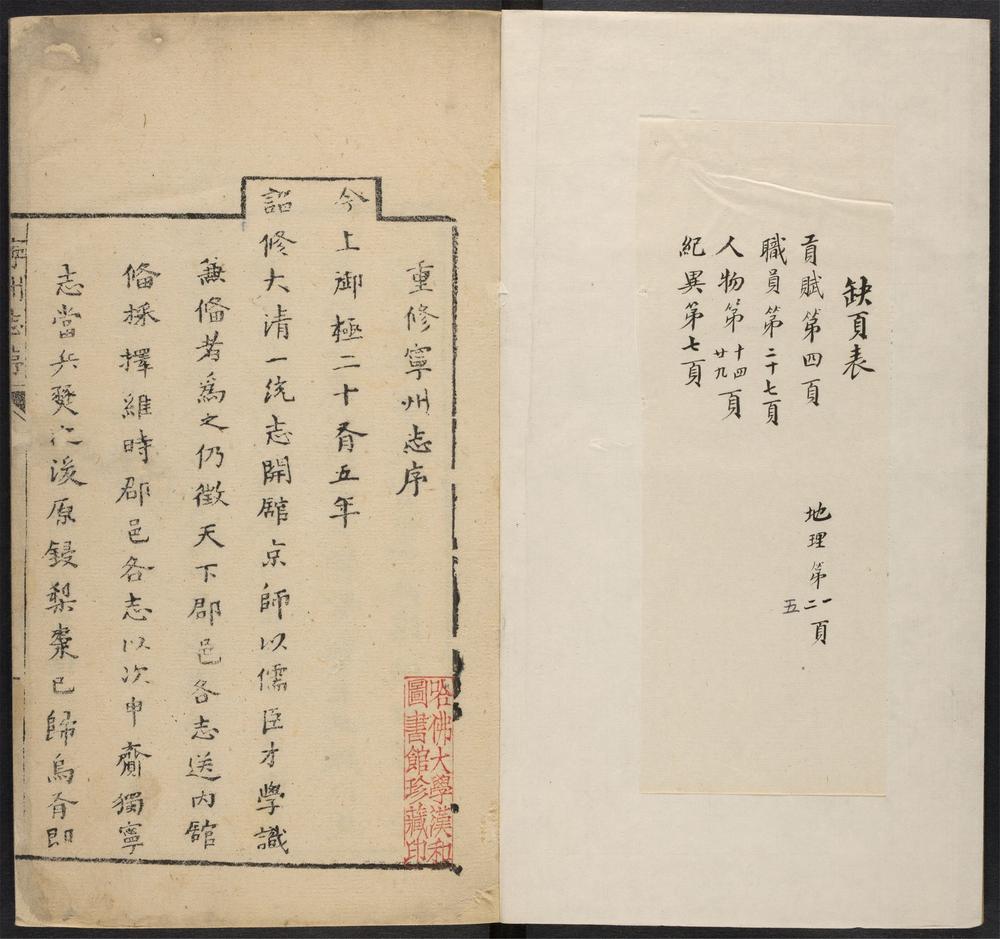 缺頁表
貢賦第四頁
地理第一二五頁
職員第二十七頁
人物第十四廿九頁
紀異第七頁
重修寧州志序
今上御極二十有五年
詔修大清一統志開舘京師以儒臣才學識
兼偹者為之仍徵天下郡邑各志送内舘
偹採擇維時郡邑各志以次申齎獨寧
志當兵燹之後原鋟梨棗已歸烏有即
寧州志序
哈佛大學漢和
圖書館珍藏印